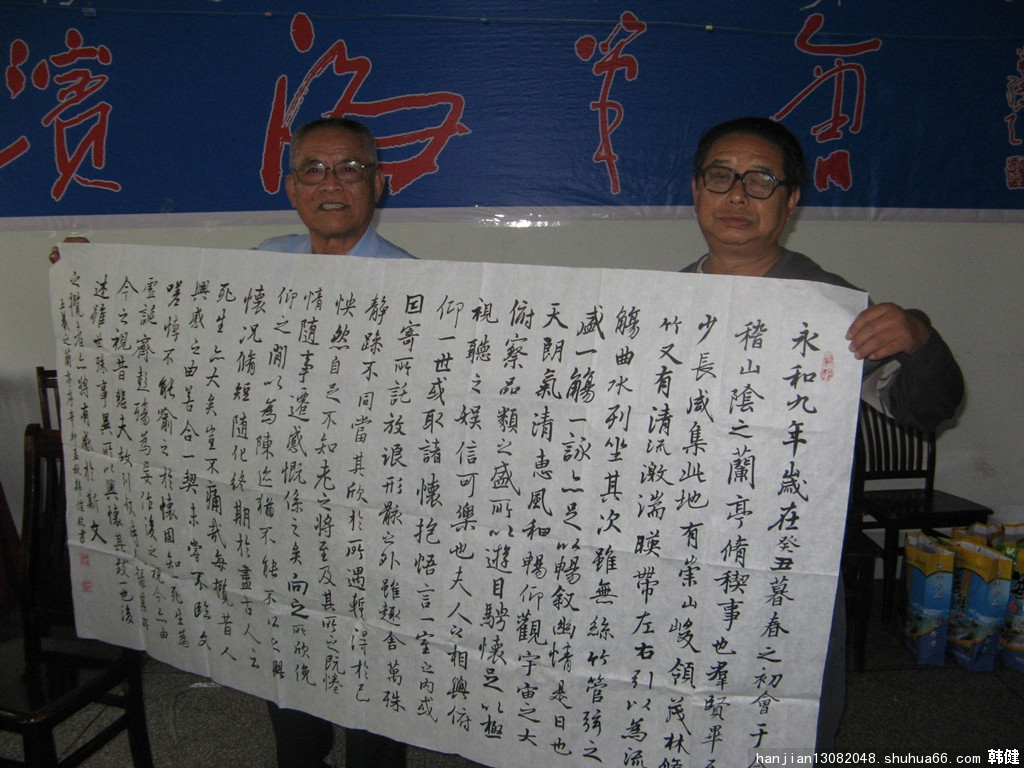 濱海筆會
永和九年歲在癸丑暮春之初會于
稽山陰之蘭亭脩稧事也羣賢畢至
少長咸集此地有崇山峻領茂林脩
竹又有清流激湍暎帶左右引以為流
觴曲水列坐其次雖無絲竹管弦之
盛一觴一詠亦足以暢敘幽情是日也
天朗氣清惠風和暢仰觀宇宙之大
俯察品類之盛所以遊目騁懷足以極
視聽之娛信可樂也夫人之相與俯
仰一世或取諸懷抱悟言一室之內或
因寄所託放浪形骸之外雖趣舍萬殊
靜躁不同當其欣於所遇輒得於己
怏然自足不知老之將至及其所之既惓
情隨事遷感慨係之矣向之所欣俛
仰之間以為陳迹猶不能不以之興
懷況脩短隨化終期於盡古人云
死生亦大矣豈不痛哉每攬昔人
興感之由若合一契未嘗不臨文
嗟悼不能喻之於懷固知一死生為
虛誕齊彭殤為妄作後之視今亦由
今之視昔悲夫故列敘時人錄其所
述雖世殊事異所以興懷其致一也後
之攬者亦將有感於斯文
王羲之蘭亭序辛卯
hanjian13082048.shuhua66.com 韩健